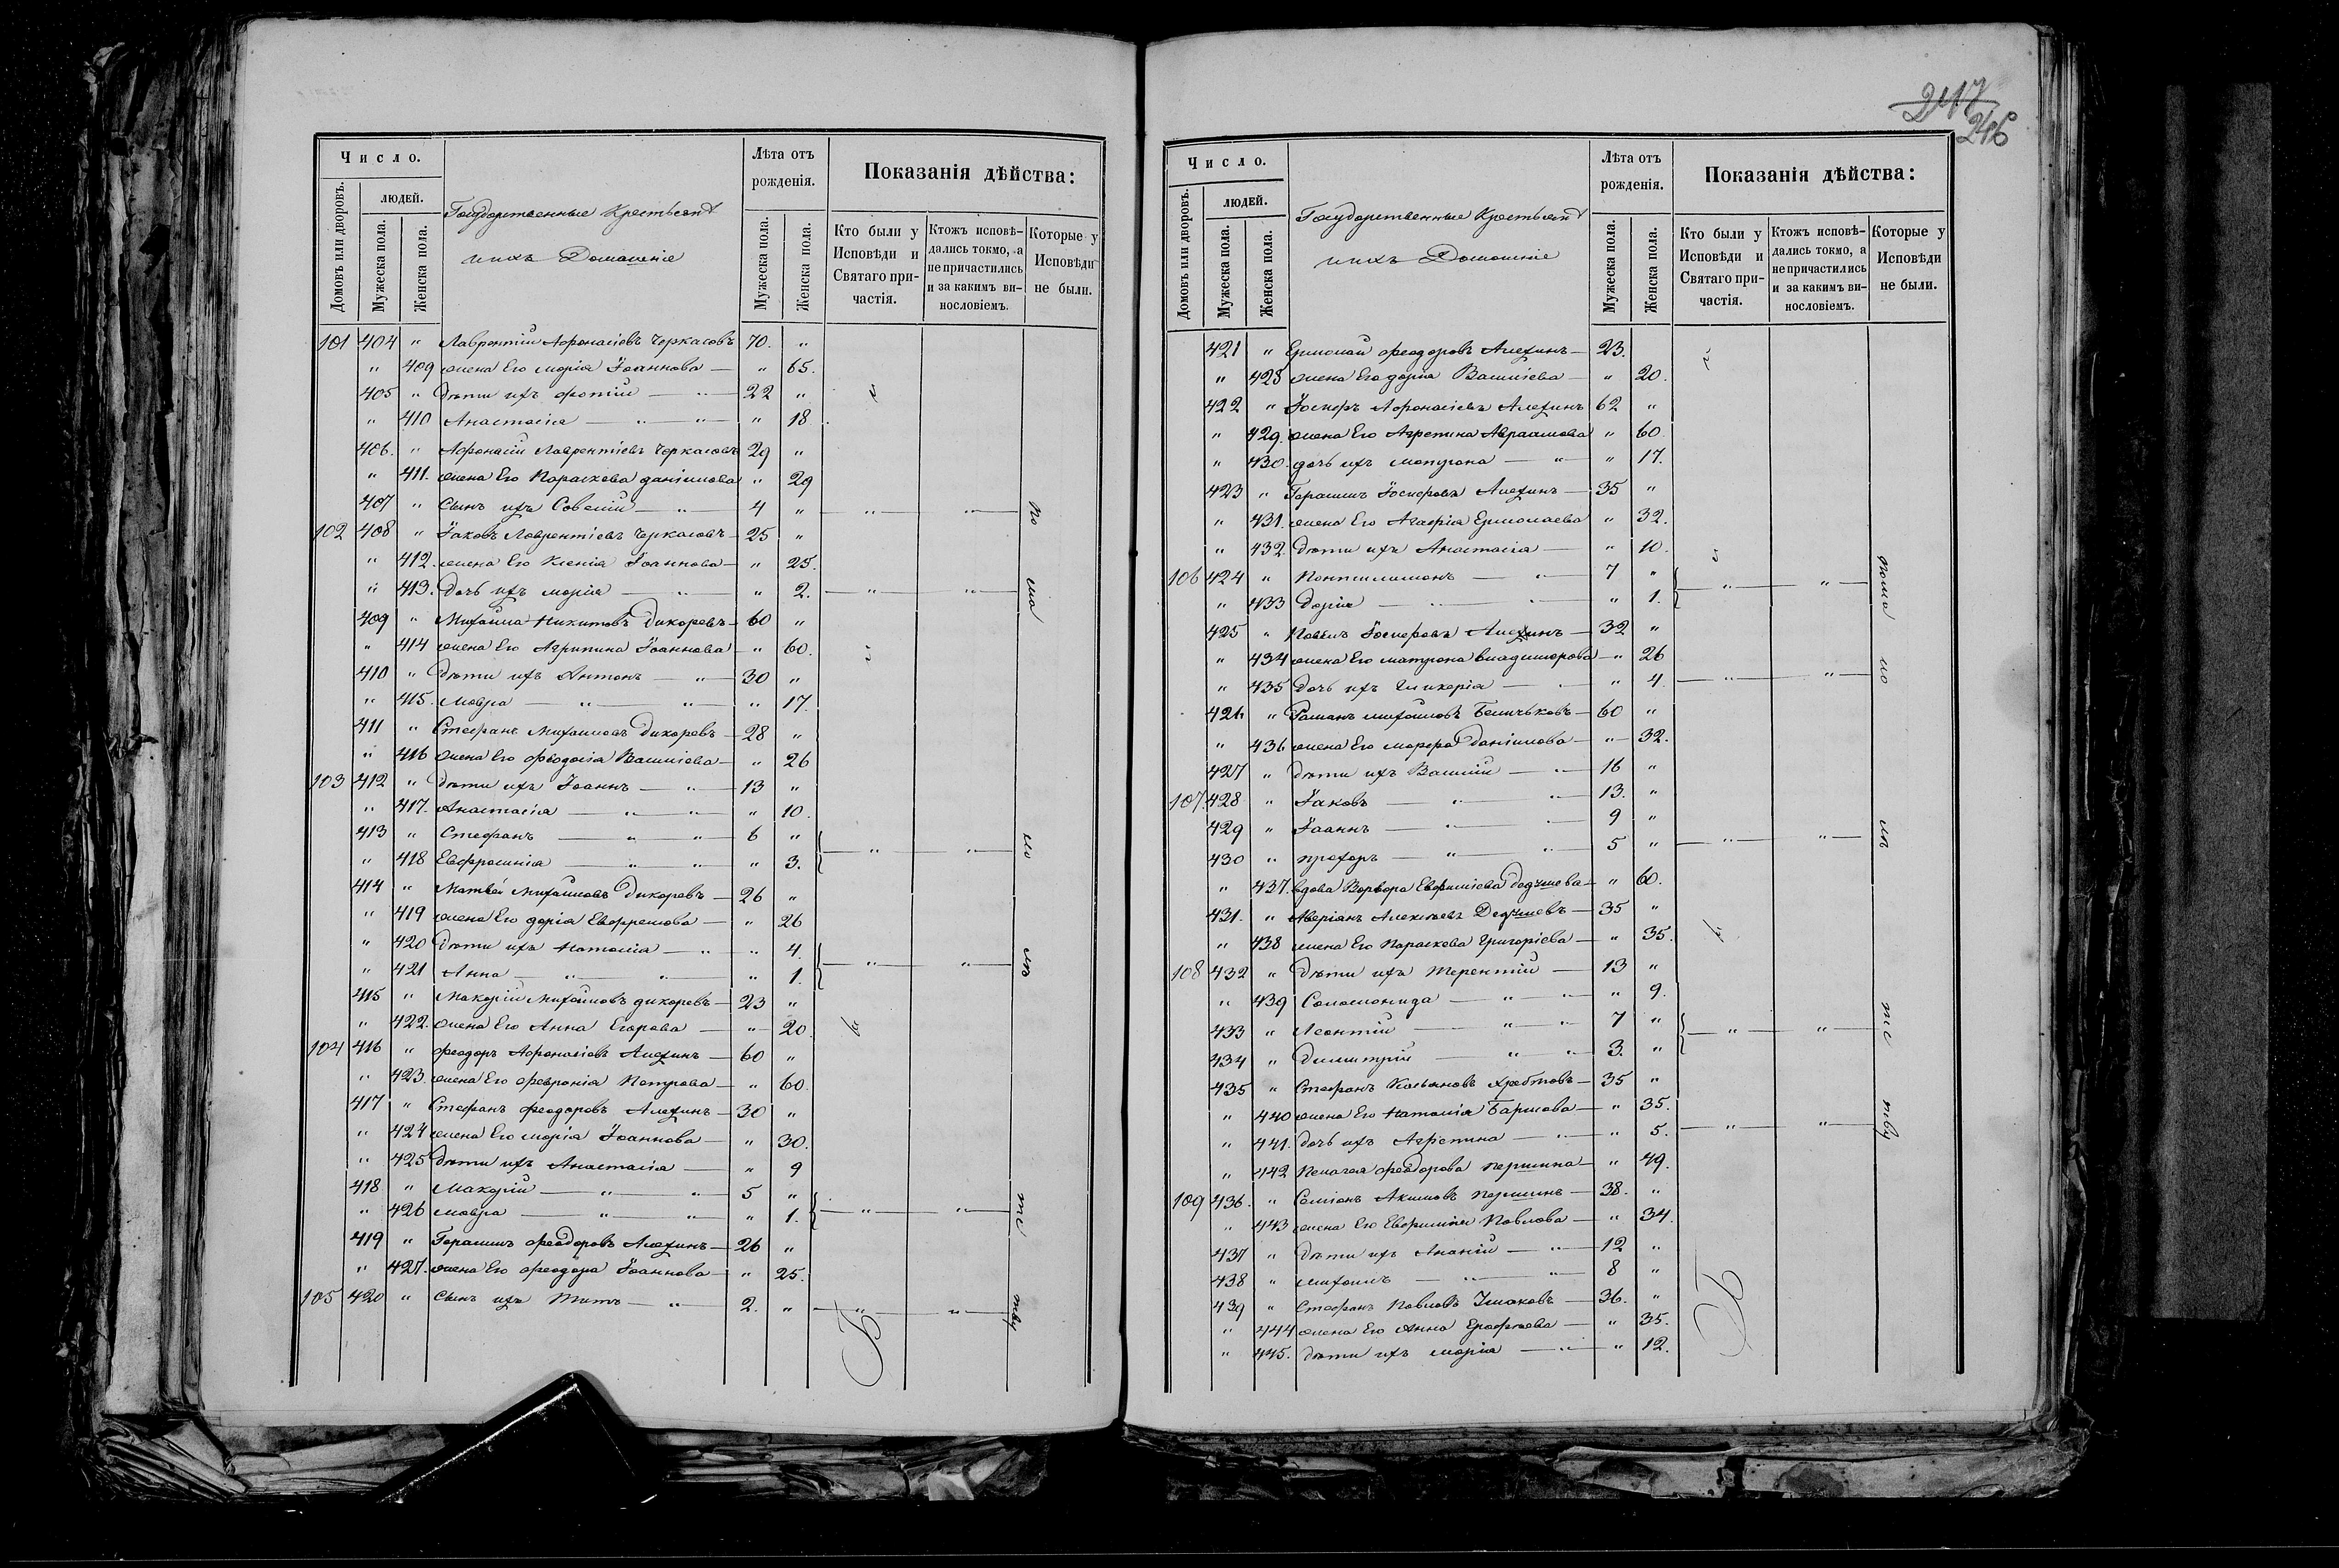 Число.
Домовъ или дворовъ.
людей.
Мужеска пола.
Женска пола.
Государственные Крестьяне
и ихъ Домашніе
Лѣта отъ рожденія.
Мужеска пола.
Женска пола.
Показанія дѣйства:
Кто были у Исповѣди и Святаго причастія.
Ктожъ исповѣдались токмо, а не причастились и за какимъ винословіемъ.
Которые у Исповѣди не были.
101 404 " Лаврентій Афонасіевъ Черкасовъ 70. "
" 409 жена Его Марія Іоаннова — " 65.
405 " Дѣти ихъ Фотій — " — 22 "
" 410 Анастасія — " — " — " 18
406. " Афонасій Лаврентіевъ Черкасовъ 29 "
" 411. жена Его Параскева Даніилова " 29
407 " Сынъ ихъ Савелій — " — 4 " — " — " —
102 408 " Іаковъ Лаврентіевъ Черкасовъ — 25 "
" 412. жена Его Ксенія Іоаннова — " 25.
" 413. Дочь ихъ Марія — " — " 2. — " — " —
409 " Михаила Никитовъ Дикоревъ — 60 "
" 414 жена Его Агрипина Іоаннова — " 60.
410 " Дѣти ихъ Антонъ — " — 30 "
" 415. Мавра — " — " — " 17.
411 " Стефанъ Михаиловъ Дикоревъ — 28 "
" 416 жена Его Феодосія Василіева — " 26
103 412 " Дѣти ихъ Іоаннъ — " — 13 "
" 417. Анастасія — " — " — " 10.
413 " Стефанъ — " — " — 6 "
" 418 Евфросинія — " — " — " 3. — " — " —
414 " Матвей Михаиловъ Дикоревъ — 26 "
" 419 жена Его Дарія Евфремова — " 26
" 420 Дѣти ихъ Наталія — " — " 4.
" 421 Анна — " — " — " 1. — " — " —
415 " Макарій Михаиловъ Дикоревъ — 23 "
" 422. жена Его Анна Егорова — " — 20
104 416 " Феодоръ Афонасіевъ Алехинъ — 60 "
" 423. жена Его Февронія Петрова — " 60.
417 " Стефанъ Феодоровъ Алехинъ — 30 "
" 424 жена Его Марія Іоаннова — " 30.
" 425 Дѣти ихъ Анастасія — " 9
418 " Макарій — " — " — 5 "
" 426 Мавра — " — " — " 1. — " — " —
419 " Герасимъ Феодоровъ Алехинъ — 26 "
" 427. жена Его Феодора Іоаннова — " 25.
105 420 " Сынъ ихъ Титъ — " — 2. " — " — " —
по ма ло лѣ тс тву
217
246
Число.
Домовъ или дворовъ.
людей.
Мужеска пола.
Женска пола.
Государственные Крестьяне
и ихъ Домашніе
Лѣта отъ рожденія.
Мужеска пола.
Женска пола.
Показанія дѣйства:
Кто были у Исповѣди и Святаго причастія.
Ктожъ исповѣдались токмо, а не причастились и за какимъ винословіемъ.
Которые у Исповѣди не были.
421 " Ермолай Феодоровъ Алехинъ — 23.
" 428 жена Его Дарія Василіева — " 20.
422 " Іосифъ Афонасіевъ Алехинъ 62 "
" 429. жена Его Агрепина Авраамова " 60
" 430. дочь ихъ Матрона — " — " 17.
423 " Герасимъ Іосифовъ Алехинъ — 35 "
" 431. жена Его Агафія Ермолаева " 32.
" 432. Дѣти ихъ Анастасія — " 10.
106 424 " Понтилимонъ — " — 7 "
" 433 Дарія — " — " — " 1. — " — " —
425 " Павелъ Іосифовъ Алехинъ — 32 "
" 434 жена Его Матрона Владимерова — " 26
" 435 Дочь ихъ Гликерія — " — " 4. — " — " —
426 " Романъ Михаиловъ Беличьковъ — 60 "
" 436 жена Его Марфа Даніилова — " — 32.
427 " Дѣти ихъ Василій — " — 16 "
107. 428 " Іаковъ — " — " — 13. "
429 " Іоаннъ — " — " — 9 "
430 " Прохоръ — " — " — 5 " — " — " —
" 437. Вдова Варвара Евфиміева — " 60.
431. " Аверіанъ Алексѣевъ — 35 "
" 438 жена Его Параскева Григоріева — " 35.
108 432 " Дѣти ихъ Терентій — 13 "
" 439 Соломонида — " — " — " 9.
433 " Леонтій — " — " — 7 "
434 " Димитрій — " — " — 3. " — " — " —
435 " Стефанъ Касьяновъ Хребтовъ — 35 "
" 440 жена Его Наталія Борисова — " 35.
" 441. Дочь ихъ Агрепина — " — " 5. — " — " —
" 442 Пелагея Феодорова Першина — " 79.
109 436. " Семіонъ Акимовъ Першинъ — 38. "
" 443 жена Его Евфимія Павлова — " 34.
437 " Дѣти ихъ Ананій — " — 12 "
438 " Михаилъ — " — " — 8 "
439 " Стефанъ Павловъ — 36. "
" 444 жена Его Анна Ерофѣева — " 35.
" 445. Дѣти ихъ Марія — " — " 12.
ло лѣ тс тву